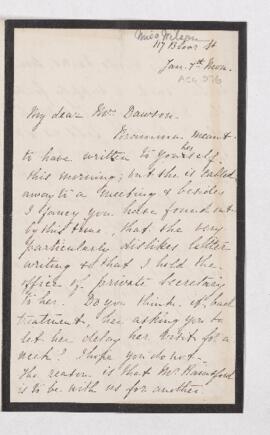 Miss Wilson
117 Bloor St
Jan. 7th Mon.
Acc 276
My dear Mrs Dawson.
Gramma meant
to have written to you herself
this morning; but she is called
away to a meeting & besides
I fancy you have found out
by this time, that she very
particularly dislikes letter
writing & that I hold the
office of private secretary
to her. Do you think it bad
treatment, her asking you to
let her delay her visit for a
week? I hope you do not.
The reason is that Mr Rainsford
is to be with us for another